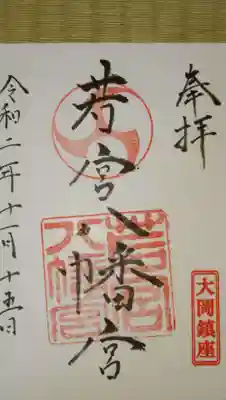 奉拝
大岡鎮座
若宮八幡宮
若宮八幡宮
令和二年十一月十五日